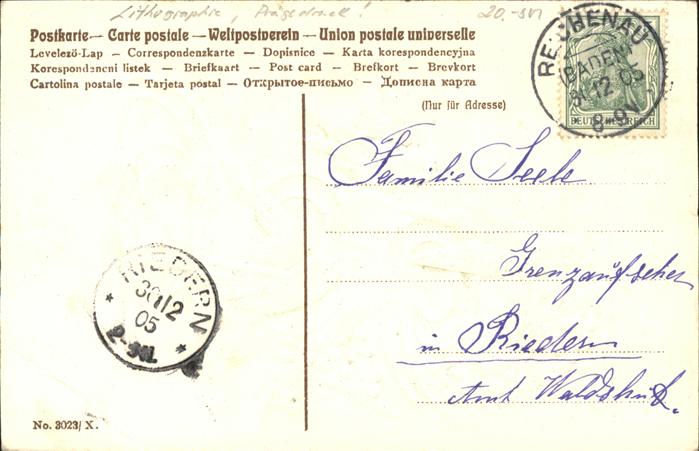 Lithographie, Prägedruck! 20.-
Postkarte — Carte postale — Weltpostverein — Union postale universelle
Levelező-Lap — Correspondenzkarte — Dopisnice — Karta korespondencyjna
Korespondencni listek — Briefkaart — Post card — Brefkort — Brevkort
Cartolina postale — Tarjeta postal — Открытое-письмо — Дописна карта
(Nur für Adresse)
REICHENAU
(BADEN)
30 12 05
8-9V.
DEUTSCHES REICH
Familie Seele
Grenzaufseher
in Riedern
Amt Waldshut.
RIEDERN
30 12
05
No. 3023/X.